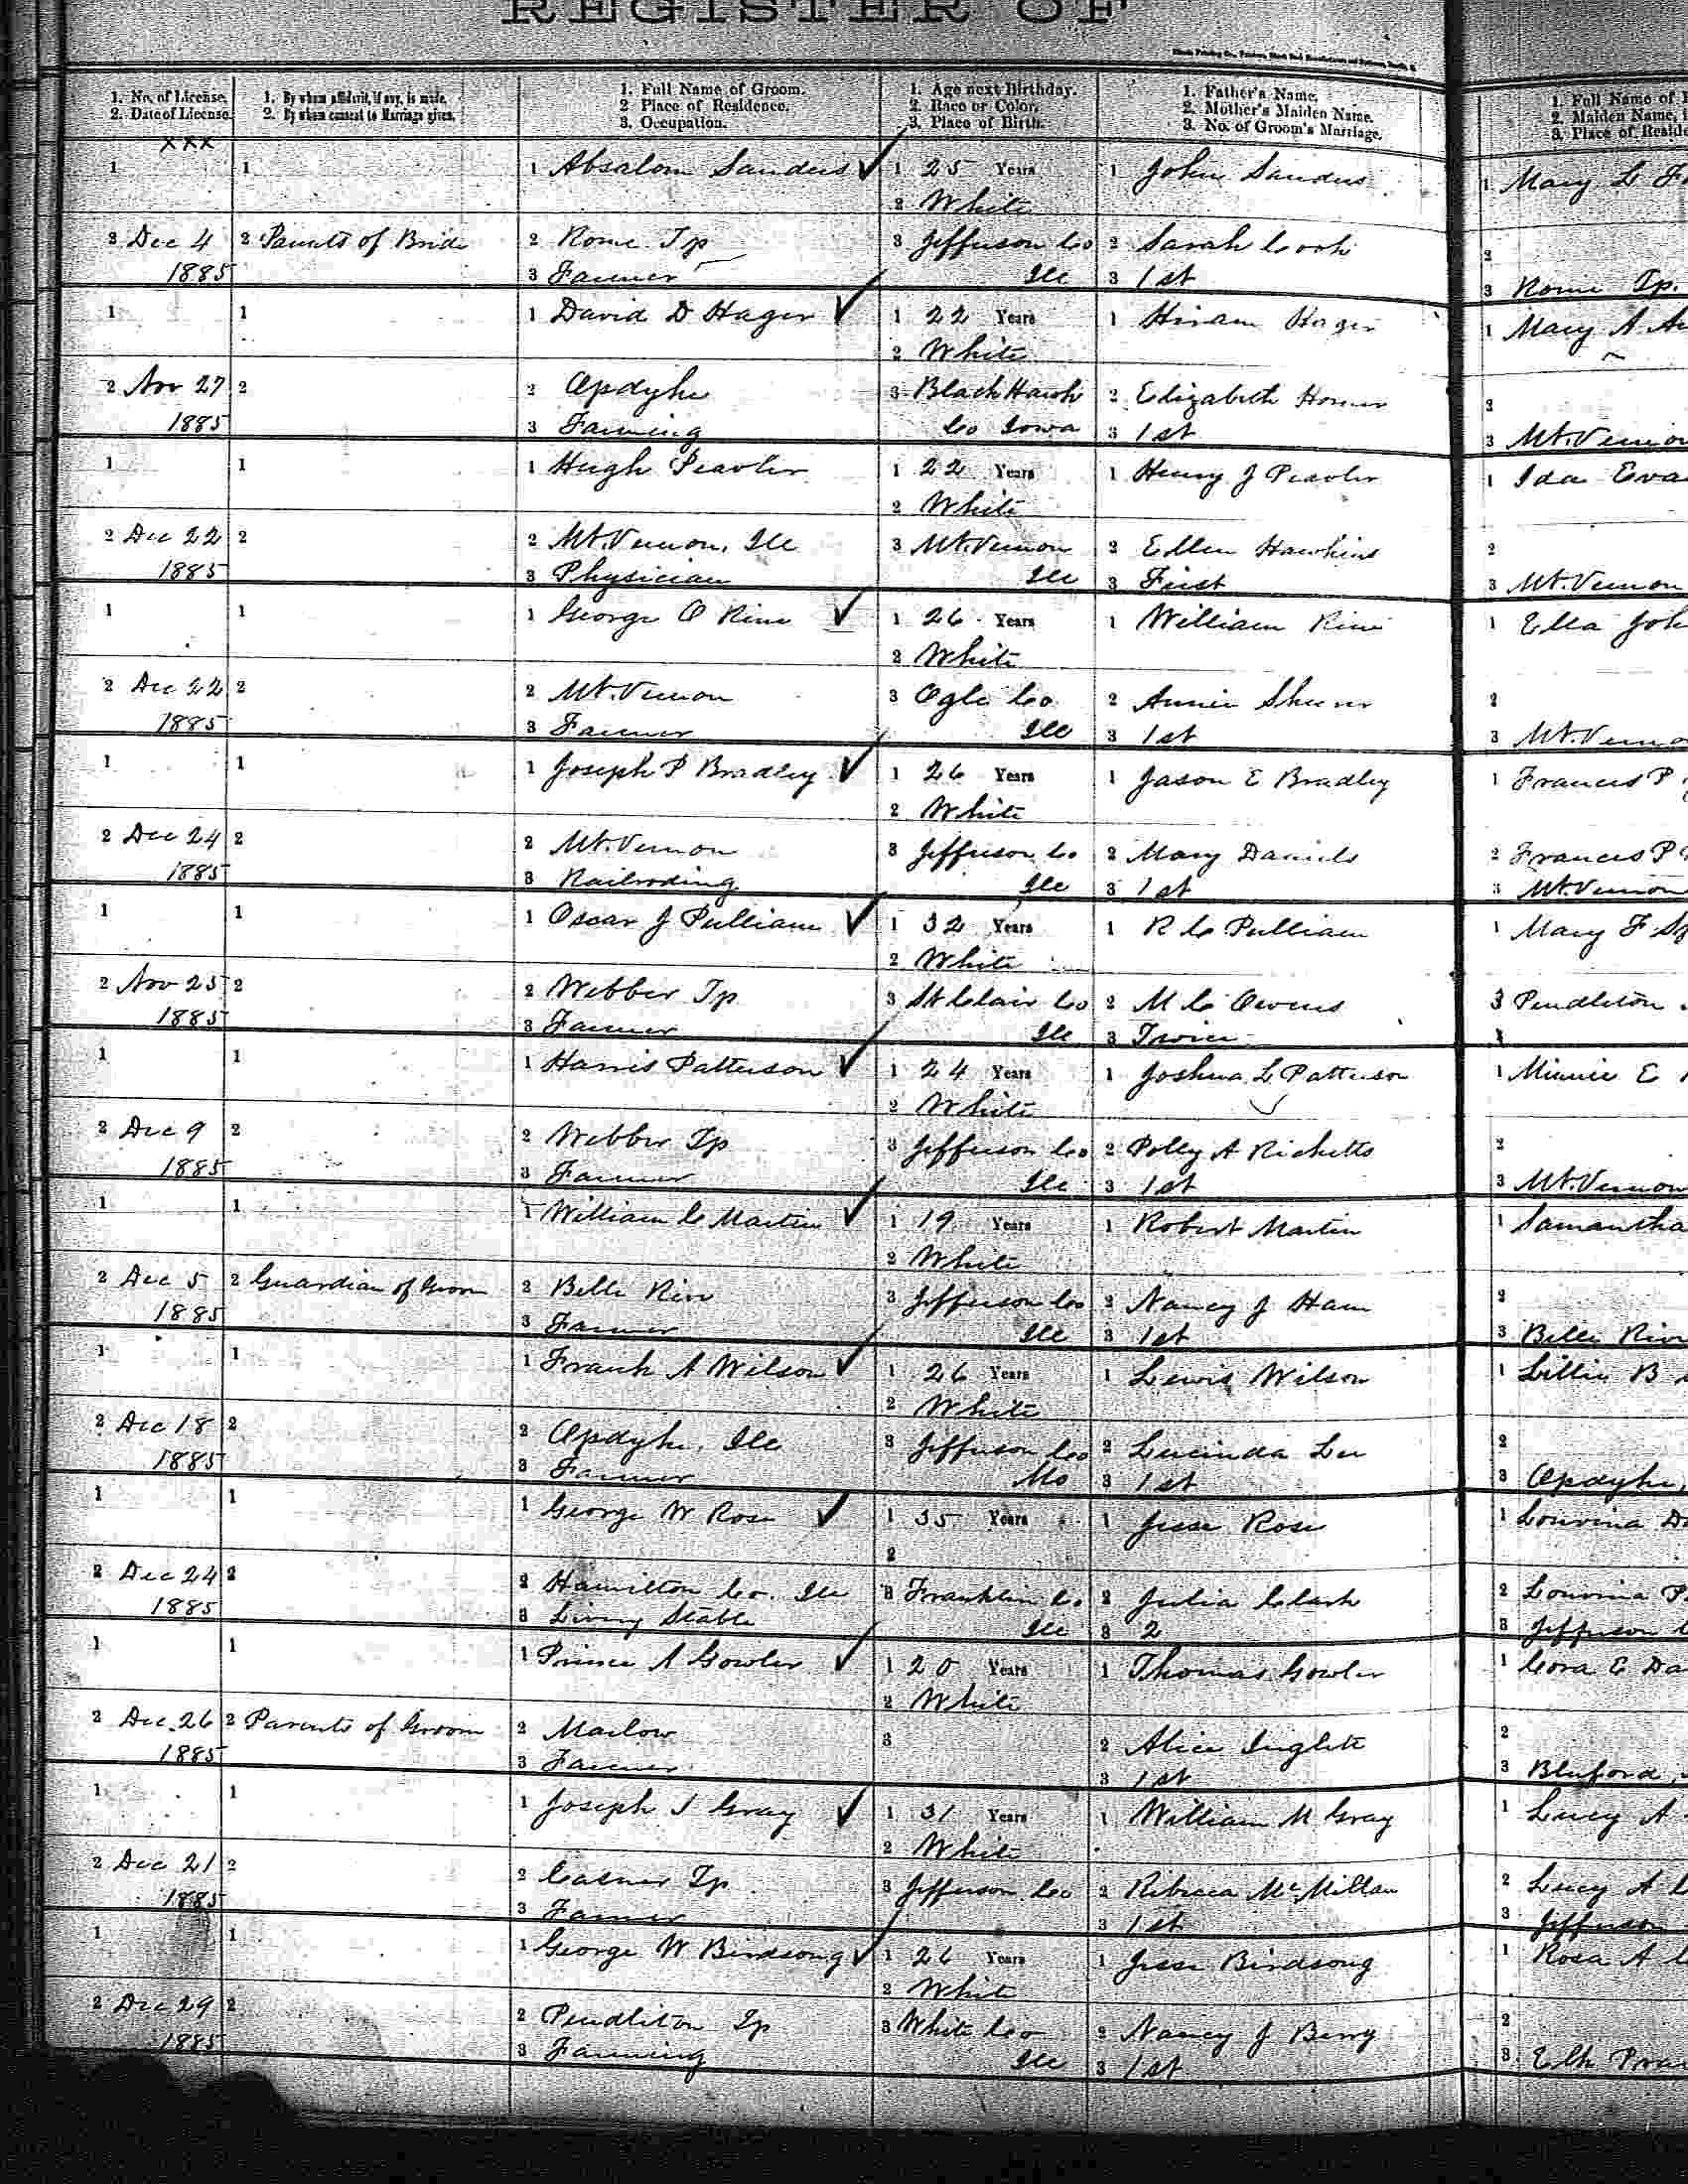 REGISTER OF
1. No. of License.
2. Date of License.
1. By whom affidavit, if any, is made.
2. By whom consent to Marriage given.
1. Full Name of Groom.
2 Place of Residence.
3. Occupation.
1. Age next Birthday.
2. Race or Color.
3. Place of Birth.
1. Father's Name.
2. Mother's Maiden Name.
3. No. of Groom's Marriage.
1. Full Name of
2. Maiden Name,
3. Place of Reside
XXX
1 1 1 Absalom Sanders ✓ 1 25 Years 1 John Sanders 1 Mary L
2 White
2 Dec 4 2 Parents of Bride 2 Rome Tp 3 Jefferson Co 2 Sarah Cook 2
1885 3 Farmer Ill 3 1st 3 Rome Tp.
1 1 1 David D Hager ✓ 1 22 Years 1 Hiram Hager 1 Mary A
2 White
2 Nov 27 2 2 Opdyke 3 Black Hawk 2 Elizabeth 2
1885 3 Farming Co Iowa 3 1st 3 Mt. Vernon
1 1 1 Hugh Peavler 1 22 Years 1 Henry J Peavler 1 Ida Eva
2 White
2 Dec 22 2 2 Mt. Vernon, Ill 3 Mt. Vernon 2 Ellen Hawkins 2
1885 3 Physician Ill 3 First 3 Mt. Vernon
1 1 1 George O Rine ✓ 1 26 Years 1 William Rine 1 Ella Joh
2 White
2 Dec 22 2 2 Mt. Vernon 3 Ogle Co 2 Annie 2
1885 3 Farmer Ill 3 1st 3 Mt. Verno
1 1 1 Joseph P Bradley ✓ 1 26 Years 1 Jason E Bradley 1 Frances P
2 White
2 Dec 24 2 2 Mt. Vernon 3 Jefferson Co 2 Mary Daniels 2 Frances P
1885 3 Railroding Ill 3 1st 3 Mt Vernon
1 1 1 Oscar J Pulliam ✓ 1 32 Years 1 R C Pulliam 1 Mary F
2 White
2 Nov 25 2 2 Webber Tp 3 St Clair Co 2 M C Owens 3 Pendleton
1885 3 Farmer Ill 3 Twice
1 1 1 Harris Patterson ✓ 1 24 Years 1 Joshua L Patterson 1 Minnie E
2 White
2 Dec 9 2 2 Webber Tp 3 Jefferson Co 2 Polly A Ricketts 2
1885 3 Farmer Ill 3 1st 3 Mt. Vernon
1 1 1 William C Martin ✓ 1 19 Years 1 Robert Martin 1 Samantha
2 White
2 Dec 5 2 Guardian of Groom 2 Belle Rive 3 Jefferson Co 2 Nancy J Ham 2
1885 3 Farmer Ill 3 1st 3 Belle Rive
1 1 1 Frank A Wilson ✓ 1 26 Years 1 Lewis Wilson 1 Lillie B
2 White
2 Dec 18 2 2 Opdyke, Ill 3 Jefferson Co 2 Lucinda Lee 2
1885 3 Farmer Mo 3 1st 3 Opdyke,
1 1 1 George W Rose ✓ 1 35 Years 1 Jesse Rose 1 Louvina Da
2
2 Dec 24 2 2 Hamilton Co. Ill 3 Franklin Co 2 Julia Clark 2 Louvina P
1885 3 Livery Stable Ill 3 2 3 Jefferson C
1 1 1 Prince A Gowler ✓ 1 20 Years 1 Thomas Gowler 1 Cora E Da
2 White
2 Dec. 26 2 Parents of Groom 2 Marlow 3 2 Alice 2
1885 3 Farmer 3 1st 3 Bluford,
1 1 1 Joseph J Gray ✓ 1 31 Years 1 William M Gray 1 Lucy A
2 White
2 Dec 21 2 2 Casner Tp 3 Jefferson Co 2 Rebecca McMillan 2 Lucy A
1885 3 Farmer 3 1st 3 Jefferson
1 1 1 George W Birdsong ✓ 1 26 Years 1 Jesse Birdsong 1 Rosa A
2 White
2 Dec 29 2 2 Pendleton Tp 3 White Co 2 Nancy J Berry 2
1885 3 Farming Ill 3 1st 3 Elk Prai